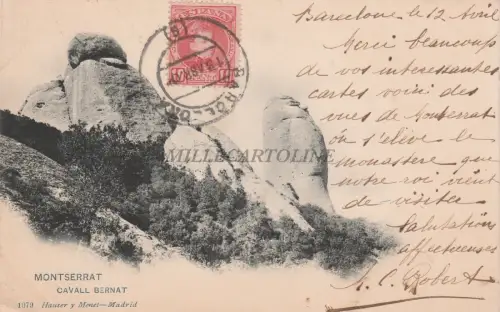 Barcelone le 12 Avril
Merci beaucoup
de vos interessantes
cartes voici des
vues de Montserrat
où s'élève le
monastère que
notre roi vient
de visiter
Salutations
affectueuses
A. C. Robert
ESPAÑA
MILLECARTOLINE
MONTSERRAT
CAVALL BERNAT
1079 Hauser y Menet.—Madrid